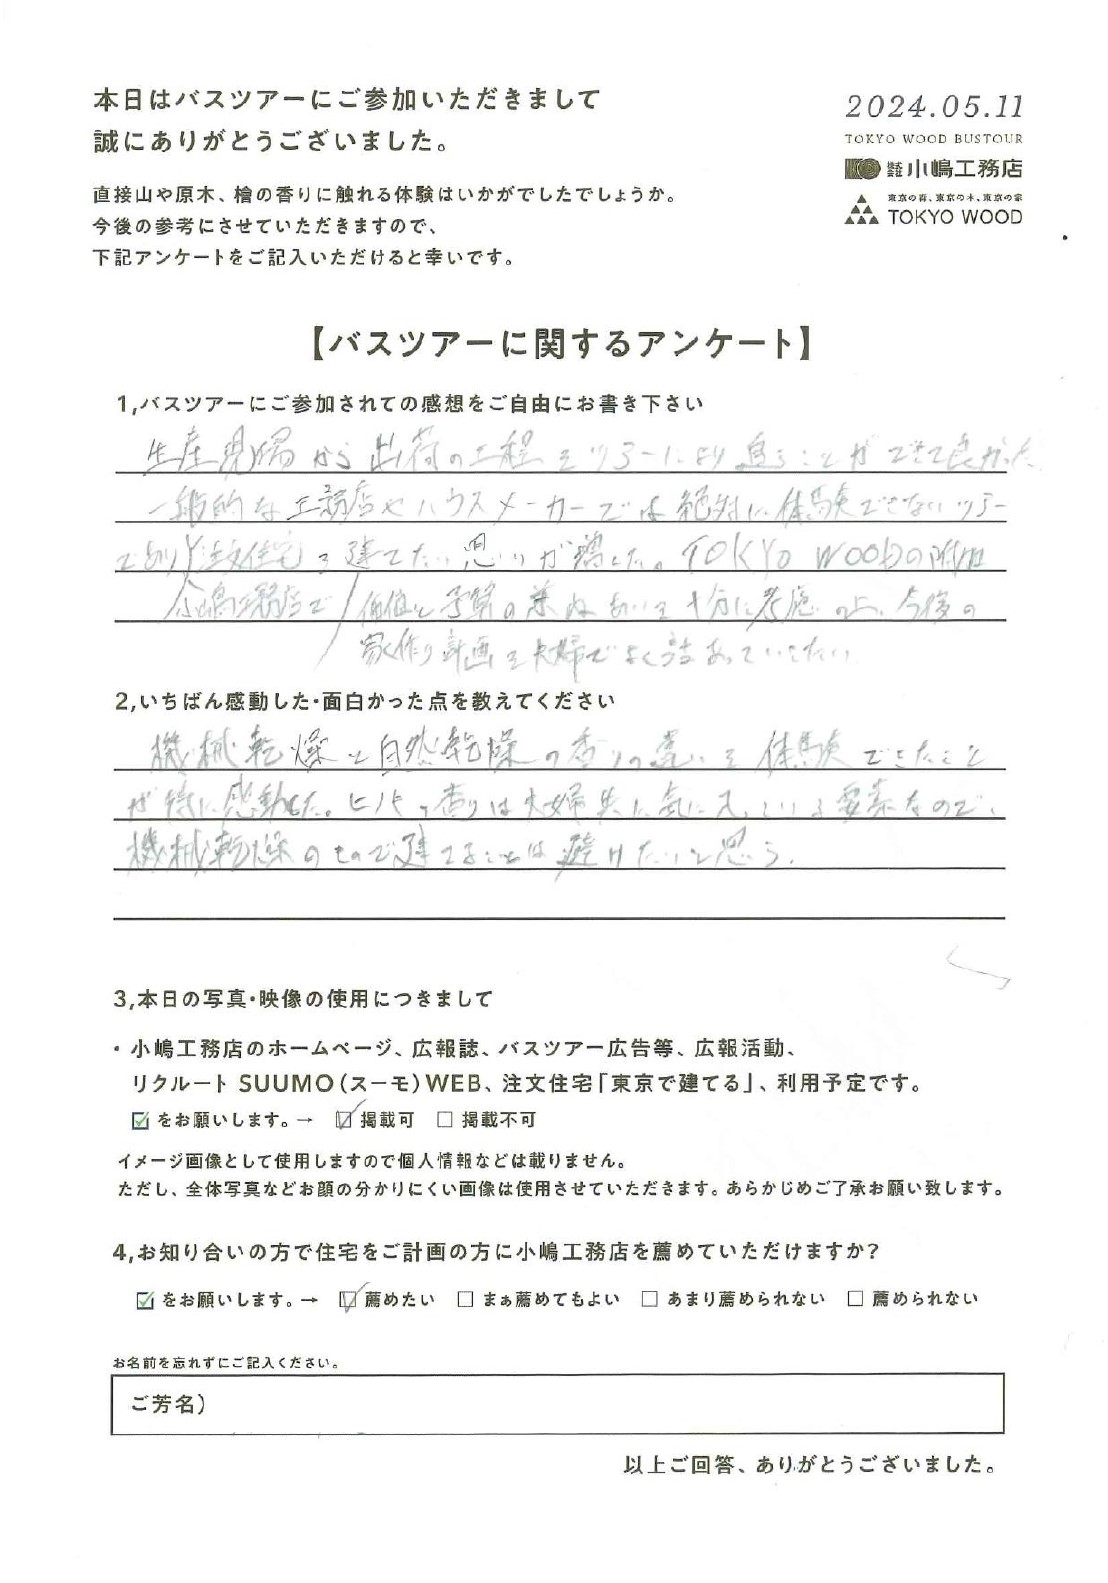 本日はバスツアーにご参加いただきまして
誠にありがとうございました。
直接山や原木、檜の香りに触れる体験はいかがでしたでしょうか。
今後の参考にさせていただきますので、
下記アンケートをご記入いただけると幸いです。
2024.05.11
TOKYO WOOD BUSTOUR
株式会社小嶋工務店
東京の森、東京の木、東京の家
TOKYO WOOD
【バスツアーに関するアンケート】
1,バスツアーにご参加されての感想をご自由にお書き下さい
生産現場から出荷の工程をツアーにより見ることができて良かった
一般的な工務店やハウスメーカーでは絶対に体験できないツアー
であり注文住宅を建てたい思いが増した。TOKYO WOODの附加
小嶋工務店で
価値と予算の兼ねあいを十分に考慮の上、今後の
家作り計画を夫婦でよく話あっていきたい
2,いちばん感動した・面白かった点を教えてください
機械乾燥と自然乾燥の香りの違いを体験できたこと
が特に感動した。ヒノキの香りは夫婦共に気に入っている要素なので、
機械乾燥のもので建てることは避けたいと思う。
3,本日の写真・映像の使用につきまして
・小嶋工務店のホームページ、広報誌、バスツアー広告等、広報活動、
リクルート SUUMO(スーモ)WEB、注文住宅「東京で建てる」、利用予定です。
☑をお願いします。→ ☑掲載可 □掲載不可
イメージ画像として使用しますので個人情報などは載りません。
ただし、全体写真などお顔の分かりにくい画像は使用させていただきます。あらかじめご了承お願い致します。
4,お知り合いの方で住宅をご計画の方に小嶋工務店を薦めていただけますか?
☑をお願いします。→ ☑薦めたい □まぁ薦めてもよい □あまり薦められない □薦められない
お名前を忘れずにご記入ください。
ご芳名)
以上ご回答、ありがとうございました。